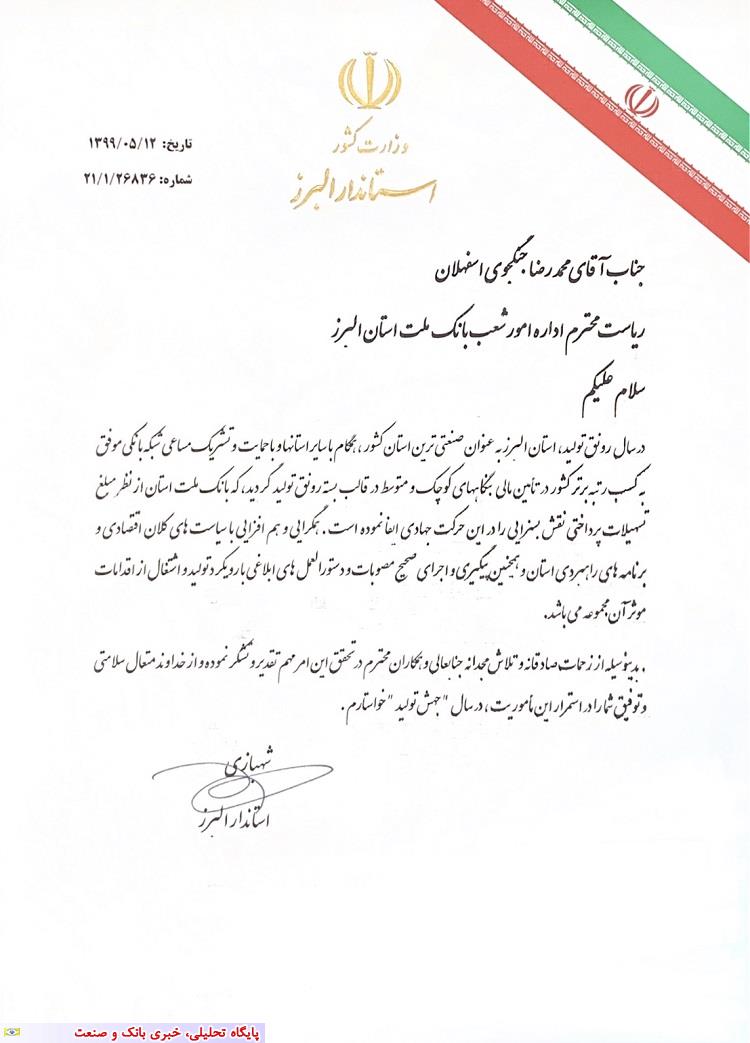 وزارت کشور
استاندار البرز
تاریخ: ۱۳۹۹/۰۵/۱۲
شماره: ۲۱/۱/۲۶۸۳۶
جناب آقای محمدرضا جنگجوی اسفهلان
ریاست محترم اداره امور شعب بانک ملت استان البرز
سلام علیکم
در سال رونق تولید، استان البرز به عنوان صنعتی ترین استان کشور، همگام با سایر استانها و با حمایت و تشریک مساعی شبکه بانکی موفق
به کسب رتبه برتر کشور در تأمین مالی بنگاههای کوچک و متوسط در قالب بسته رونق تولید گردید، که بانک ملت استان از نظر مبلغ
تسهیلات پرداختی نقش بسزایی را در این حرکت جهادی ایفا نموده است. همگرایی و هم افزایی با سیاست های کلان اقتصادی و
برنامه های راهبردی استان و همچنین پیگیری و اجرای صحیح مصوبات و دستورالعمل های ابلاغی با رویکرد تولید و اشتغال از اقدامات
موثر آن مجموعه می باشد.
. بدینوسیله از زحمات صادقانه و تلاش مجدانه جنابعالی و همکاران محترم در تحقق این امر مهم تقدیر و تشکر نموده و از خداوند متعال سلامتی
و توفیق شما را در استمرار این مأموریت، در سال "جهش تولید" خواستارم.
شهبازی
استاندار البرز
پایگاه تحلیلی، خبری بانک و صنعت